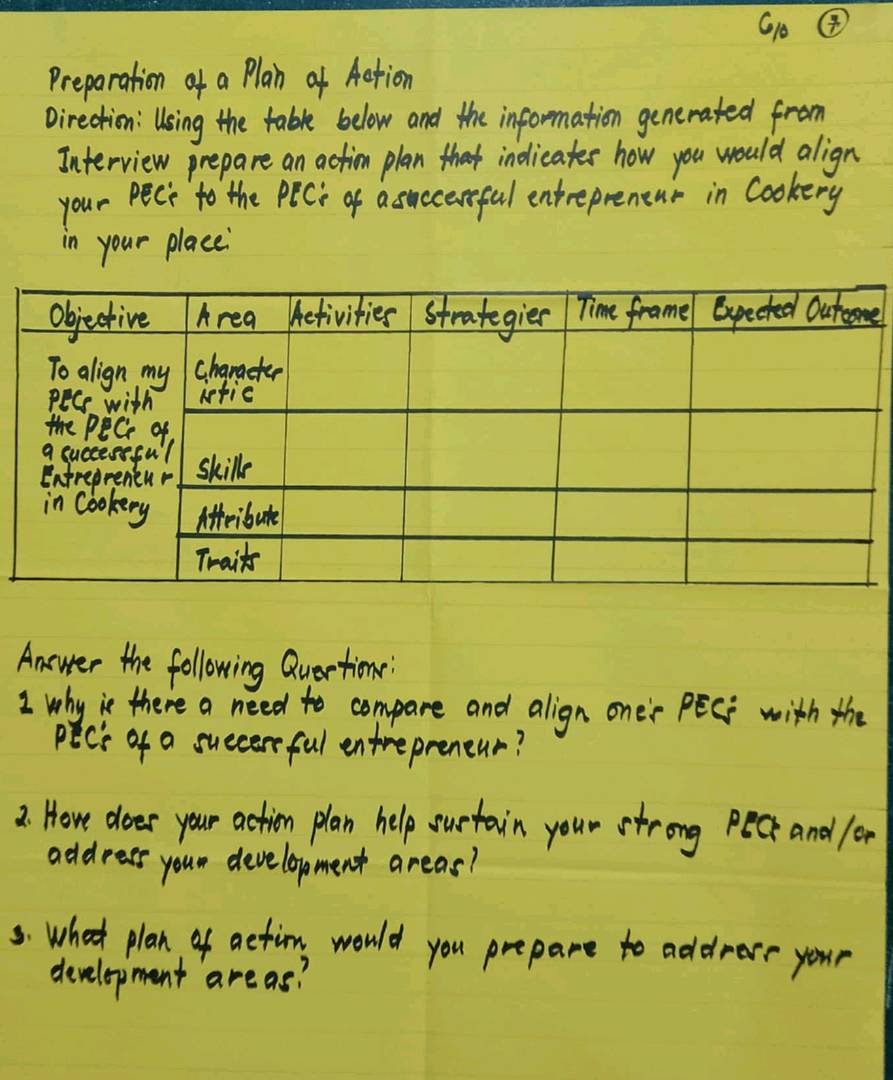 G10
Preparation of a Plan of Action
Direction: Using the table below and the information generated from
Interview prepare an action plan that indicates how you would align
your PEC's to the PEC's of a successful entrepreneur in Cookery
in your place:
Objective Area Activities Strategies Time frame Expected Outcome
To align my
PECs with
the PEC's of
a successful
Entrepreneur
in Cookery
Character
istic
Skills
Attribute
Traits
Answer the following Questions:
1 Why is there a need to compare and align one's PEC's with the
PEC's of a successful entrepreneur?
2. How does your action plan help sustain your strong PECs and/or
address your development areas?
3. What plan of action would you prepare to address your
development areas?